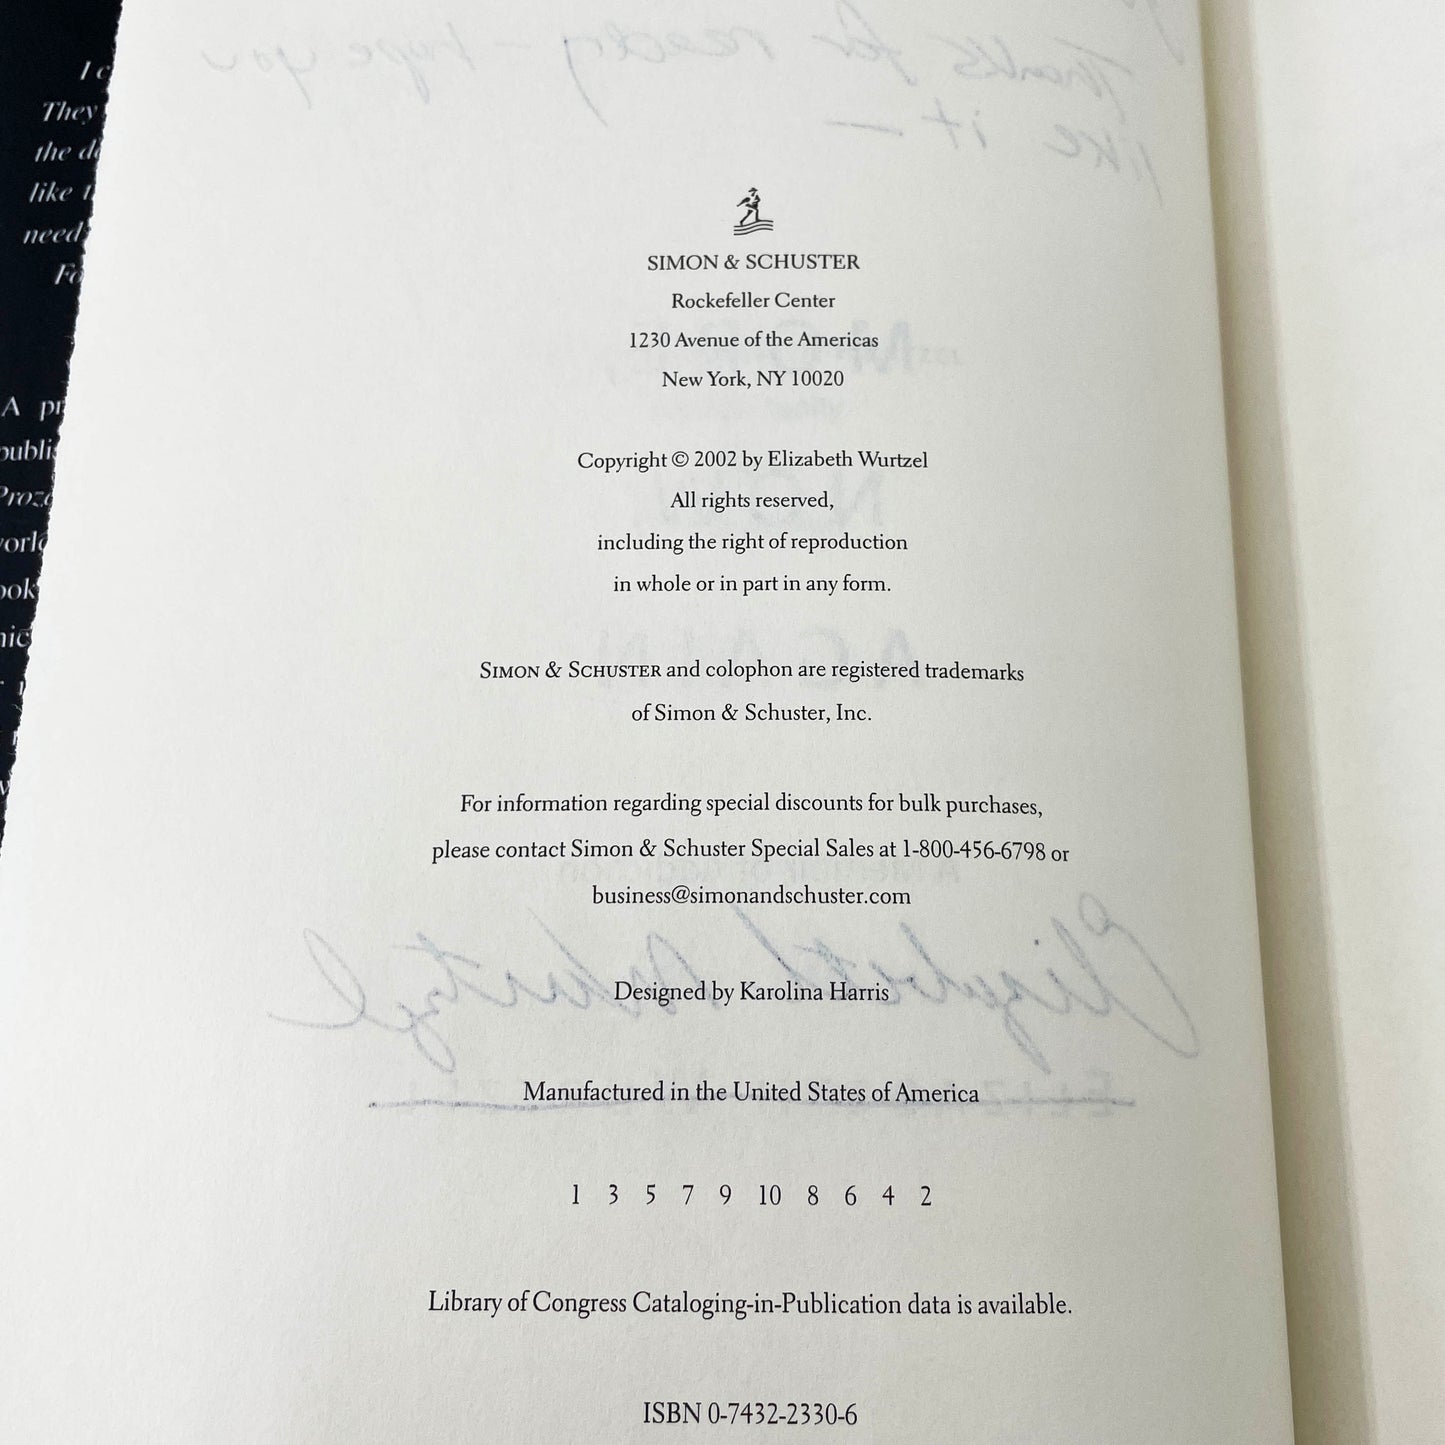 I
They
the
like
need
A
SIMON & SCHUSTER
Rockefeller Center
1230 Avenue of the Americas
New York, NY 10020
Copyright © 2002 by Elizabeth Wurtzel
All rights reserved,
including the right of reproduction
in whole or in part in any form.
SIMON & SCHUSTER and colophon are registered trademarks
of Simon & Schuster, Inc.
For information regarding special discounts for bulk purchases,
please contact Simon & Schuster Special Sales at 1-800-456-6798 or
business@simonandschuster.com
Designed by Karolina Harris
Manufactured in the United States of America
1 3 5 7 9 10 8 6 4 2
Library of Congress Cataloging-in-Publication data is available.
ISBN 0-7432-2330-6
Thanks for reading – hope you
like it –
Elizabeth Wurtzel